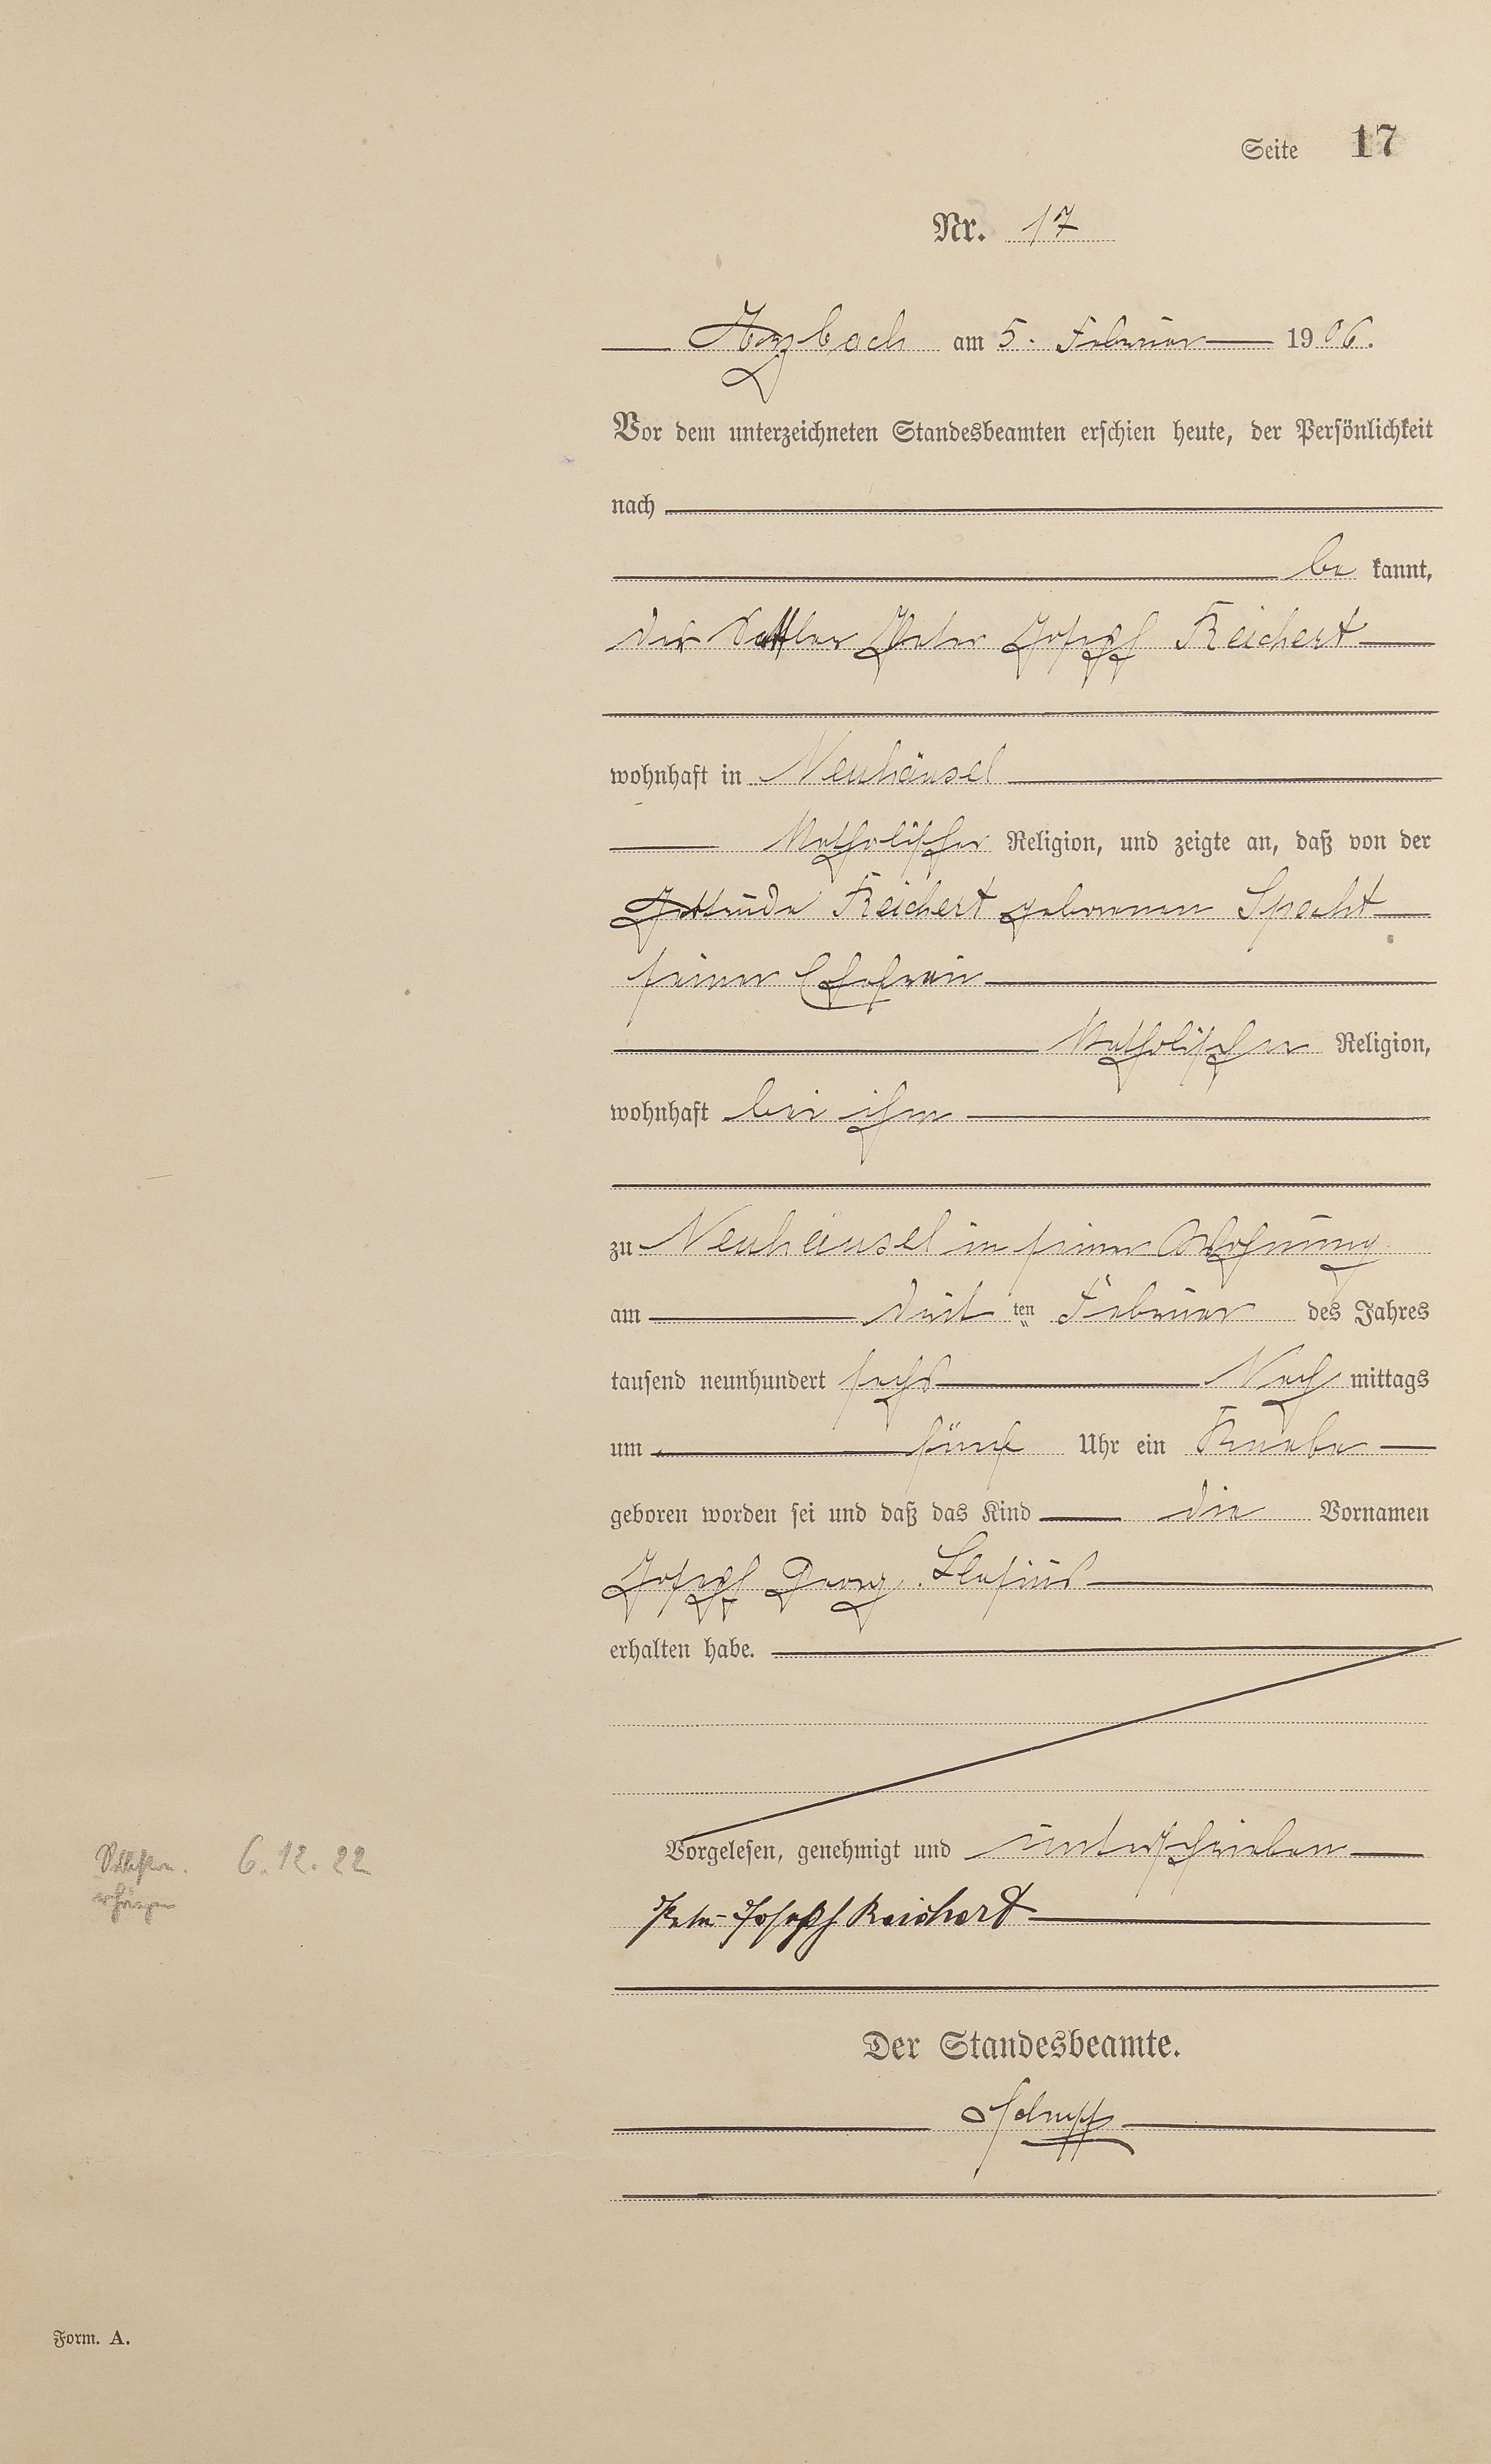 Seite 17
Nr. 17
Arzbach am 5. Februar 1906.
Vor dem unterzeichneten Standesbeamten erschien heute, der Persönlichkeit
nach
be kannt,
der Sattler Peter Joseph Reichert
wohnhaft in Neuhäusel
Katholischer Religion, und zeigte an, daß von der
Gertrude Reichert geborenen Specht
seiner Ehefrau
Katholischer Religion,
wohnhaft bei ihm
zu Neuhäusel in seiner Wohnung
am drit ten Februar des Jahres
tausend neunhundert sechs Nach mittags
um fünf Uhr ein Knabe
geboren worden sei und daß das Kind die Vornamen
Joseph Georg
erhalten habe.
Vorgelesen, genehmigt und unterschrieben
6.12.22
Peter Joseph Reichert
Der Standesbeamte.
Form. A.